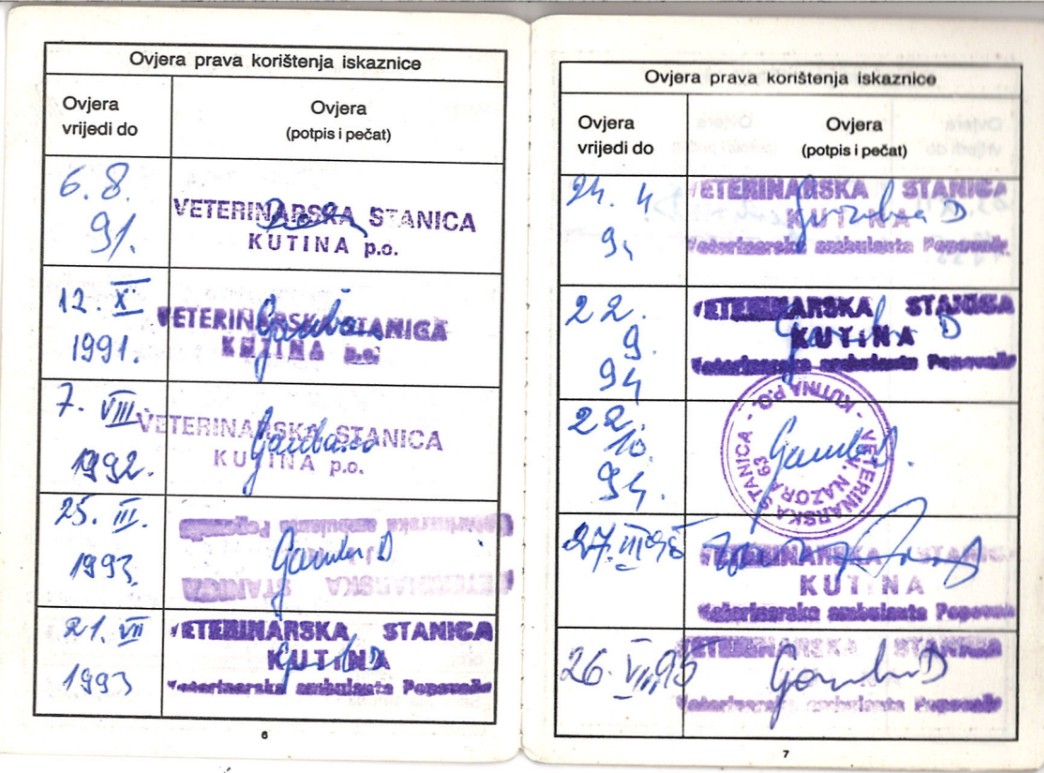 Ovjera prava korištenja iskaznice
Ovjera
vrijedi do
Ovjera
(potpis i pečat)
6. 8.
91.
VETERINARSKA STANICA
KUTINA p.o.
12. X.
1991.
VETERINARSKA STANICA
KUTINA p.o.
7. VIII.
1992.
VETERINARSKA STANICA
KUTINA p.o.
25. III.
1993.
VETERINARSKA STANICA
21. VII
1993
VETERINARSKA STANICA
KUTINA
Veterinarska ambulanta Popovača
6
Ovjera prava korištenja iskaznice
Ovjera
vrijedi do
Ovjera
(potpis i pečat)
24. 4
VETERINARSKA STANICA
KUTINA
Veterinarska ambulanta Popovača
22.
9.
94
VETERINARSKA STANICA
KUTINA
Veterinarska ambulanta Popovača
22.
10.
94.
VETERINARSKA STANICA - KUTINA P.O. -
V. NAZORA 63
27. III 95
VETERINARSKA STANICA
KUTINA
Veterinarska ambulanta Popovača
26. VIII 95
VETERINARSKA STANICA
Veterinarska ambulanta Popovača
7